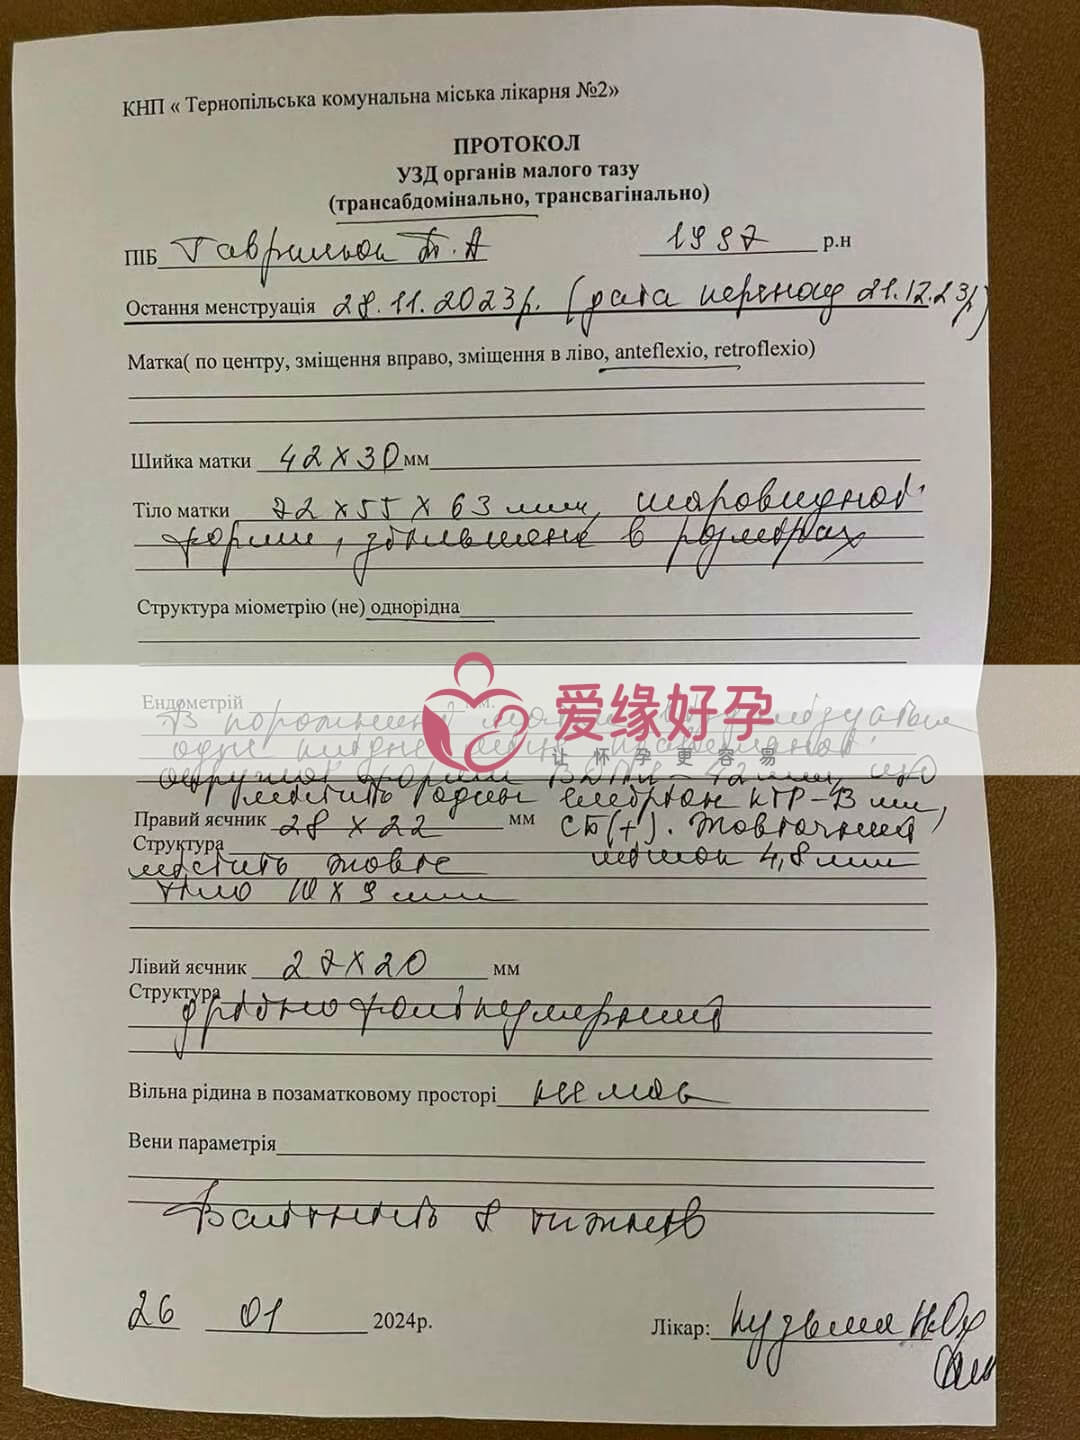 КНП « Тернопільська комунальна міська лікарня №2»
ПРОТОКОЛ
УЗД органів малого тазу
(трансабдомінально, трансвагінально)
ПІБ Т. А 1997 р.н
Остання менструація 28.11.2023р. (дата переносу 21.12.23р)
Матка( по центру, зміщення вправо, зміщення в ліво, anteflexio, retroflexio)
Шийка матки 42 х 30 мм
Тіло матки 72 х 55 х 63 мм, шаровидної
форми, збільшена в розмірах
Структура міометрію (не) однорідна
Ендометрій мм.
В порожнині
одне плідне
爱缘好孕
让怀孕更容易
округлої форми 42 мм, що
містить один ембріон КТР-13 мм,
Правий яєчник 28 х 22 мм СБ(+). Жовточний
Структура
містить жовте мішок 4,8 мм
тіло 10 х 9 мм
Лівий яєчник 27х20 мм
Структура
дрібнофолікулярний
Вільна рідина в позаматковому просторі немає
Вени параметрія
Вагітність 8 тижнів
26 01 2024р.
Лікар: